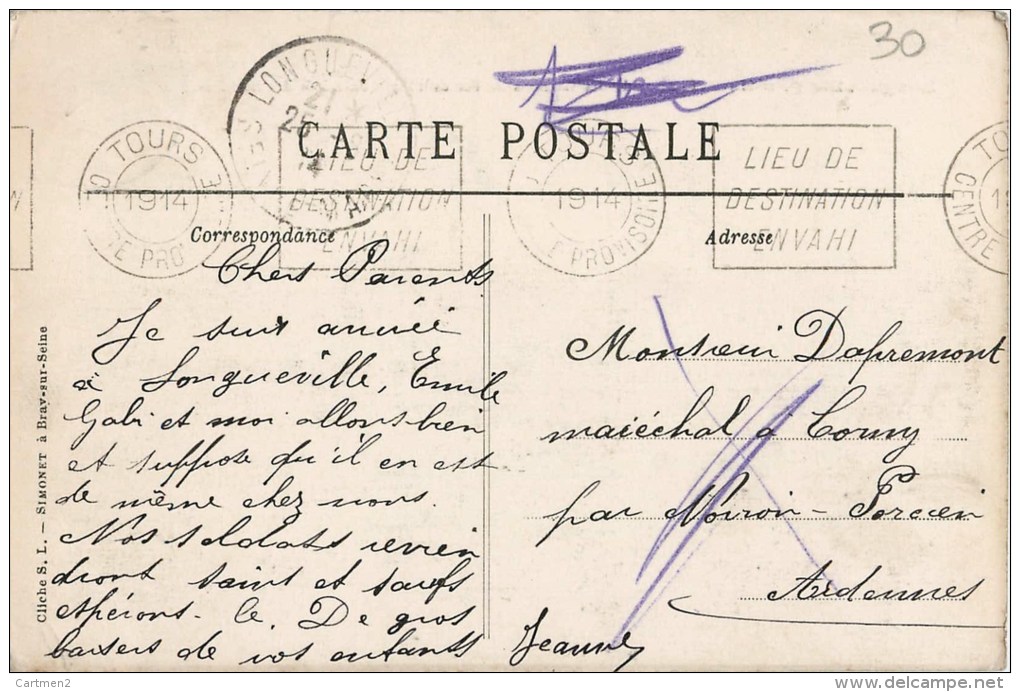 30
CARTE POSTALE
LONGUEVILLE
21
25
TOURS
1914
LIEU DE
DESTINATION
ENVAHI
TOURS
1914
E PROVISOIRE
LIEU DE
DESTINATION
ENVAHI
CENTRE
Correspondance
Adresse
Chers Parents
Je suis arrivée
à Longueville, Emile
Gabi et moi allons bien
et suppose qu'il en est
de même chez nous.
Nos soldats revien
dront saint et saufs
espérons-le. De gros
baisers de vos enfants
Jeanne
Monsieur Dapremont
maréchal à Corny
par Novion-Porcien
Ardennes
Cliché S. L. — SIMONET à Bray-sur-Seine
Cartmen2
delcampe.net